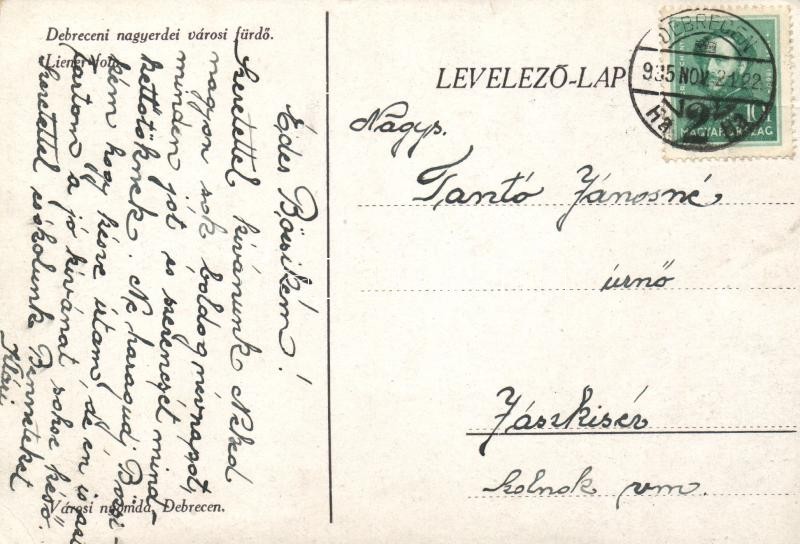 Debreceni nagyerdei városi fürdő.
(Liener fotó)
Édes Bözsikém!
Szeretettel kívánunk Neked
nagyon sok boldog névnapot,
minden jót és szerencsét mind-
kettőtöknek. Ne haragudj Bözsi-
kém hogy késve írtam, de én is azt
tartom a jó kívánat sohse késő.
Szeretettel csókolunk Benneteket
Klári
Városi nyomda, Debrecen.
LEVELEZŐ-LAP
DEBRECEN
935 NOV 21 22
10
MAGYARORSZÁG
Nagys.
Tantó Jánosné
úrnő
Jászkisér
Szolnok vm.